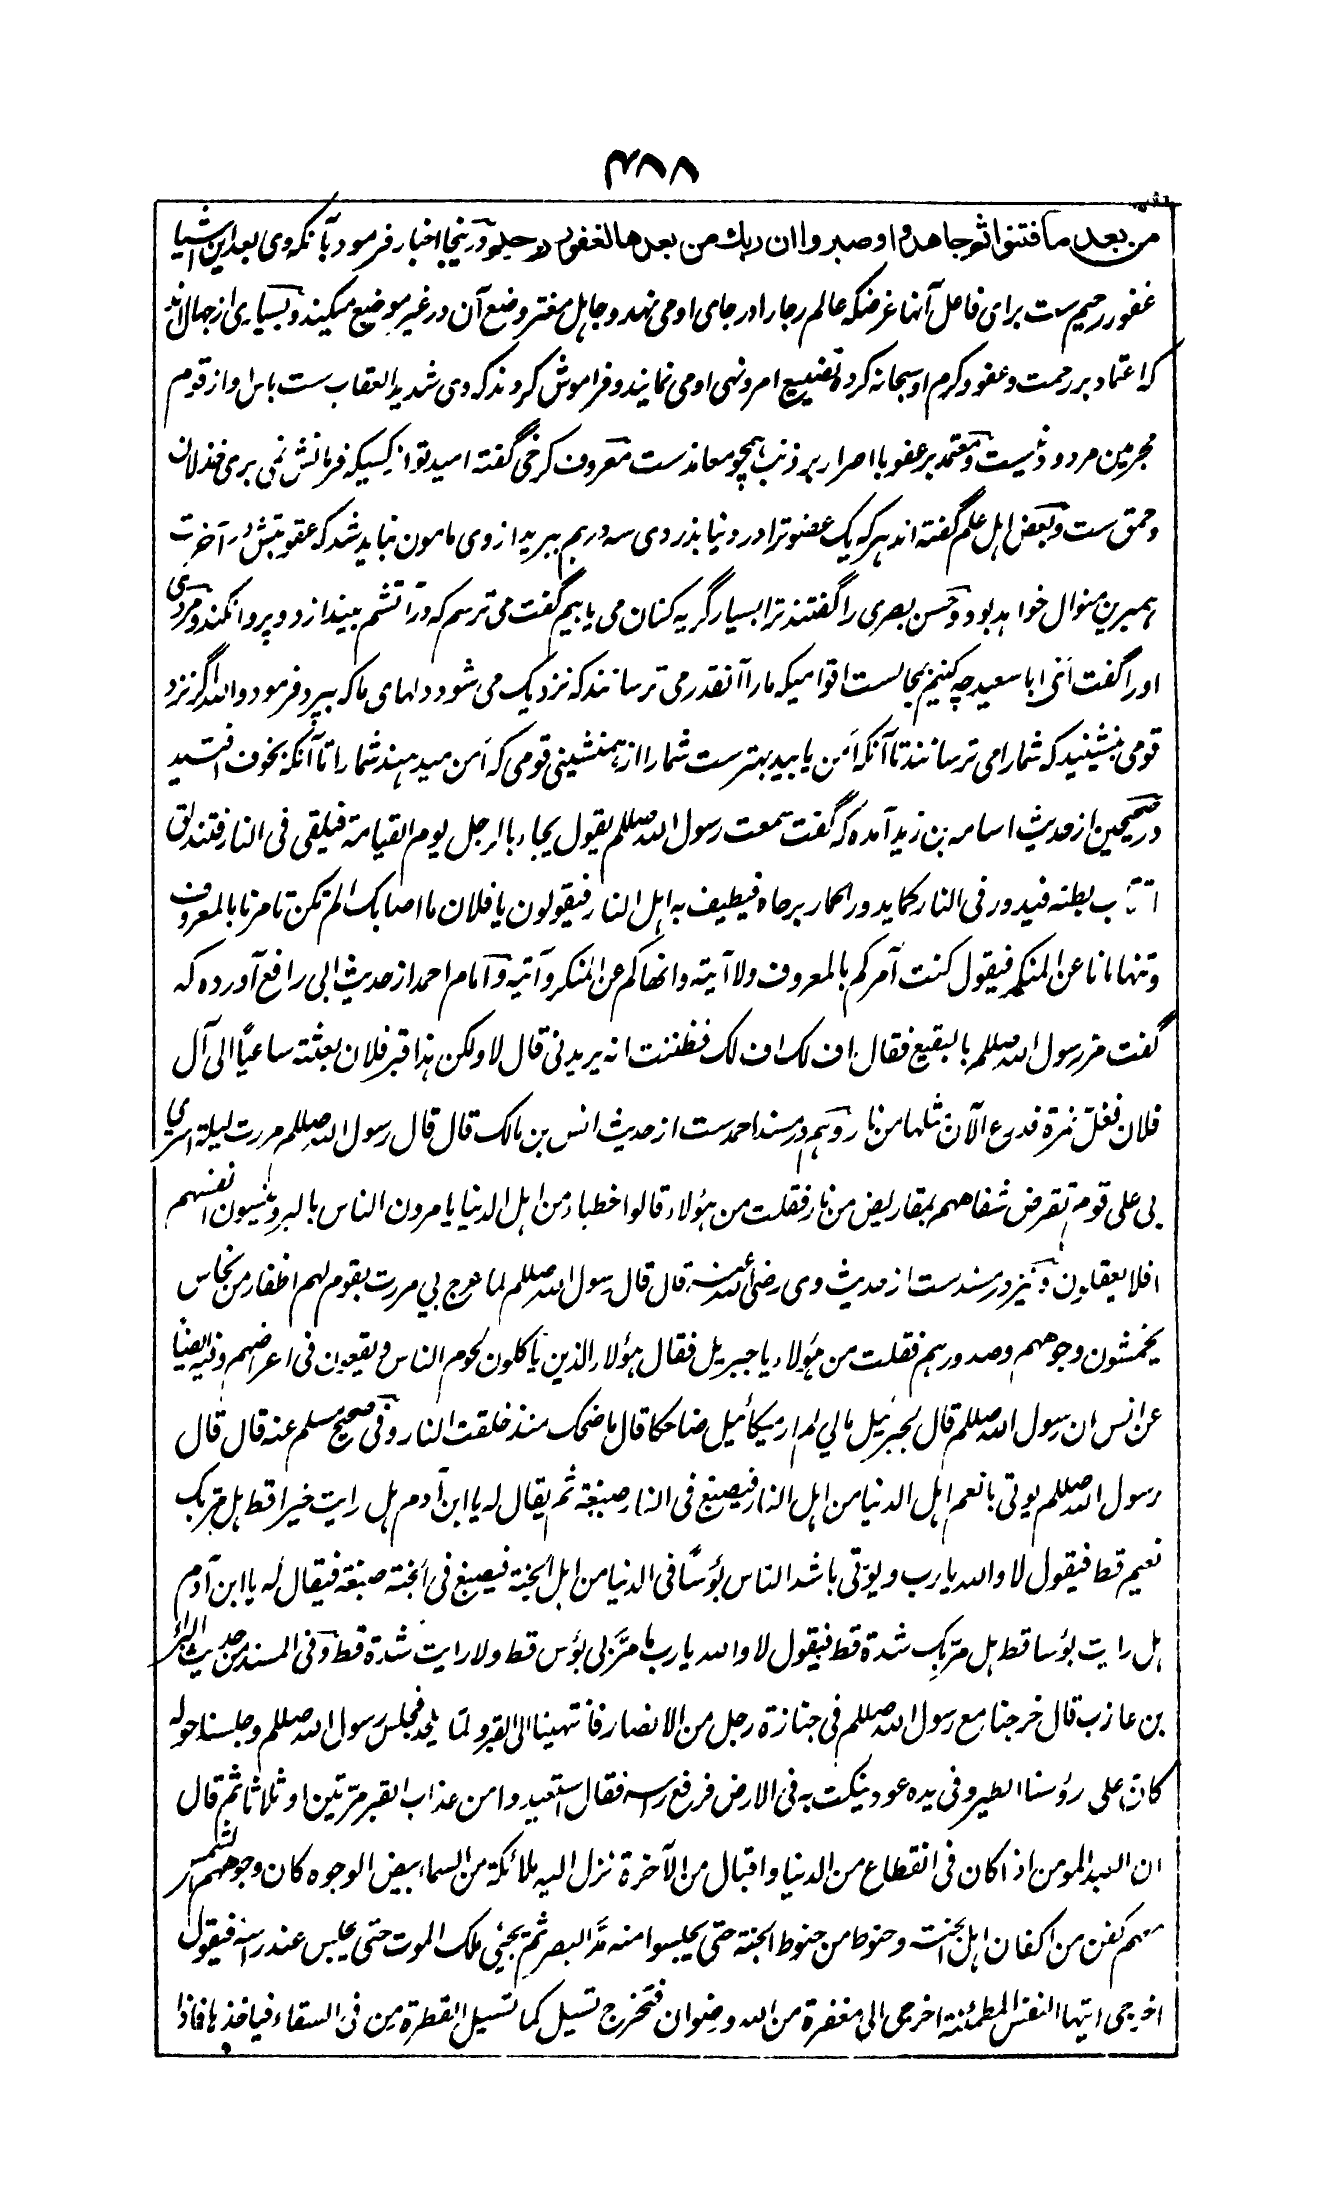 ۴۸۸
من بعد ما فتنوا ثم جاهدوا وصبروا ان ربك من بعدها لغفور رحیم درینجا اخبار فرمود بآنکه وی بعد این اشیا
غفور رحیم ست برای فاعل آنها غرضکه عالم رجا را در جای او می نهد و جاهل مغتر وضع آن در غیر موضع میکند و بسیاری از جهال اند
که اعتماد بر رحمت و عفو و کرم او سبحانه کرده تضییع امر و نهی او می نمایند و فراموش کردند که وی شدید العقاب ست باس او از قوم
مجرمین مردود نیست و معتمد بر عفو با اصرار بر ذنب همچو معاندست معروف کرخی گفته امید تو از کسیکه فرمانش نمی بری خذلان
و حمق ست و بعض اهل علم گفته اند هرکه یک عضو ترا در دنیا بدزدی سه درهم ببرید از وی مامون نباید شد که عقوبتش در آخرت
همبرین منوال خواهد بود و حسن بصری را گفتند ترا بسیار گریه کنان می یابیم گفت می ترسم که در آتشم بیندازد و پروا نکند و مردی
او را گفت انی ابا سعید چه کنیم بمجالست اقوامیکه ما را آنقدر می ترسانند که نزدیک می شود دلهای ما که بپرد فرمود والله اگر نزد
قومی بنشینید که شما را می ترسانند تا آنکه امن یابید بهترست شما را از همنشینی قومی که امن میدهند شما را تا آنکه بخوف افتید
در صحیحین از حدیث اسامه بن زید آمده که گفت سمعت رسول الله صللم یقول یجاء بالرجل یوم القیامة فیلقی فی النار فتندلق
اقتاب بطنه فیدور فی النار کما یدور الحمار برحاه فیطیف به اهل النار فیقولون یا فلان ما اصابک الم تکن تامرنا بالمعروف
و تنهانا عن المنکر فیقول کنت آمرکم بالمعروف ولا آتیه وانهاکم عن المنکر وآتیه و امام احمد از حدیث ابی رافع آورده که
گفت مر رسول الله صللم بالبقیع فقال اف لک اف لک فظننت انه یریدنی قال لا ولکن هذا قبر فلان بعثته ساعیًا الی آل
فلان فغلّ نمرة فدرع الآن مثلها من نار و هم در مسند احمدست از حدیث انس بن مالک قال قال رسول الله صللم مررت لیلة اسری
بی علی قوم تقرض شفاههم بمقاریض من نار فقلت من هؤلاء قالوا خطباء من اهل الدنیا یامرون الناس بالبر و ینسون انفسهم
افلا یعقلون و نیز در مسندست از حدیث وی رضی الله عنه قال قال رسول الله صللم لما عرج بی مررت بقوم لهم اظفار من نحاس
یخمشون وجوههم وصدورهم فقلت من هؤلاء یا جبریل فقال هؤلاء الذین یاکلون لحوم الناس ویقعون فی اعراضهم وفیه ایضًا
عن انس ان رسول الله صللم قال لجبریل مالی لم ار میکائیل ضاحکا قال ما ضحک منذ خلقت النار و فی صحیح مسلم عنه قال قال
رسول الله صللم یوتی بانعم اهل الدنیا من اهل النار فیصبغ فی النار صبغة ثم یقال له یا ابن آدم هل رایت خیرا قط هل مر بک
نعیم قط فیقول لا والله یا رب و یؤتی باشد الناس بؤسًا فی الدنیا من اهل الجنة فیصبغ فی الجنة صبغة فیقال له یا ابن آدم
هل رایت بؤسا قط هل مرّ بک شدة قط فیقول لا والله یا رب ما مرّ بی بؤس قط ولا رایت شدة قط و فی المسند من حدیث البراء
بن عازب قال خرجنا مع رسول الله صللم فی جنازة رجل من الانصار فانتهینا الی القبر ولما یلحد فجلس رسول الله صللم و جلسنا حوله
کان علی رؤسنا الطیر وفی یده عود ینکت به فی الارض فرفع راسه فقال استعیذوا من عذاب القبر مرّتین او ثلاثا ثم قال
ان العبد المومن اذا کان فی انقطاع من الدنیا واقبال من الآخرة نزل الیه ملائکة من السماء بیض الوجوه کان وجوههم الشمس
معهم کفن من اکفان اهل الجنة وحنوط من حنوط الجنة حتی یجلسوا منه مدّ البصر ثم یجئی ملک الموت حتی یجلس عند راسه فیقول
اخرجی ایتها النفس المطمئنة اخرجی الی مغفرة من الله ورضوان فتخرج تسیل کما تسیل القطرة من فی السقاء فیاخذها فاذا